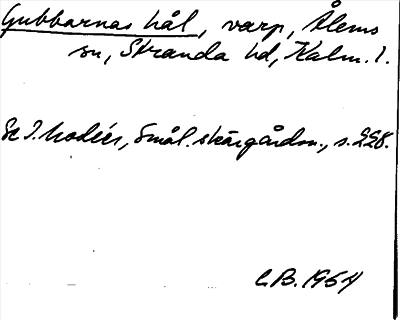 Gubbarnas hål, varp, Ålems
sn, Stranda hd, Kalm. l.
Se I. Modéer, Smål. skärgårdsn., s. 228.
C.B. 1964